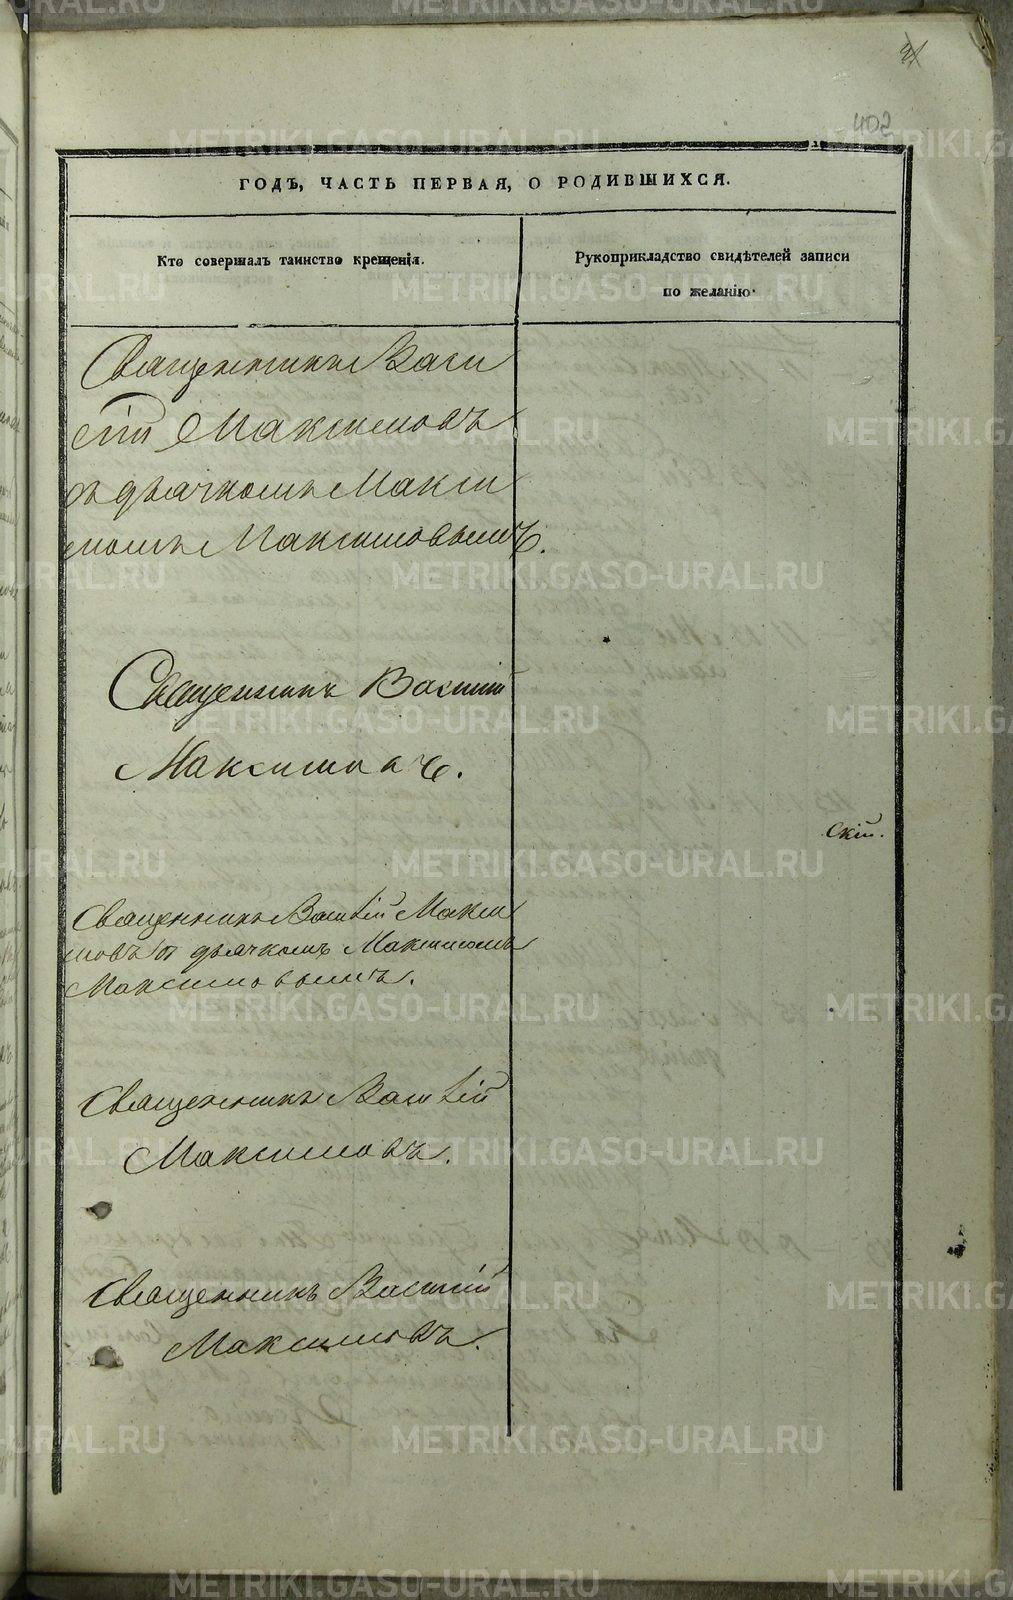 402
ГОДЪ, ЧАСТЬ ПЕРВАЯ, О РОДИВШИХСЯ.
Кто совершалъ таинство крещенія.
Рукоприкладство свидѣтелей записи
по желанію.
Священникъ Васи
лій Максимовъ
съ дьячкомъ Макси
момъ Максимовымъ.
Священникъ Василій
Максимовъ.
скій.
Священникъ Василій Макси
мовъ съ дьячкомъ Максимомъ
Максимовымъ.
Священникъ Василій
Максимовъ.
Священникъ Василій
Максимовъ.
METRIKI.GASO-URAL.RU